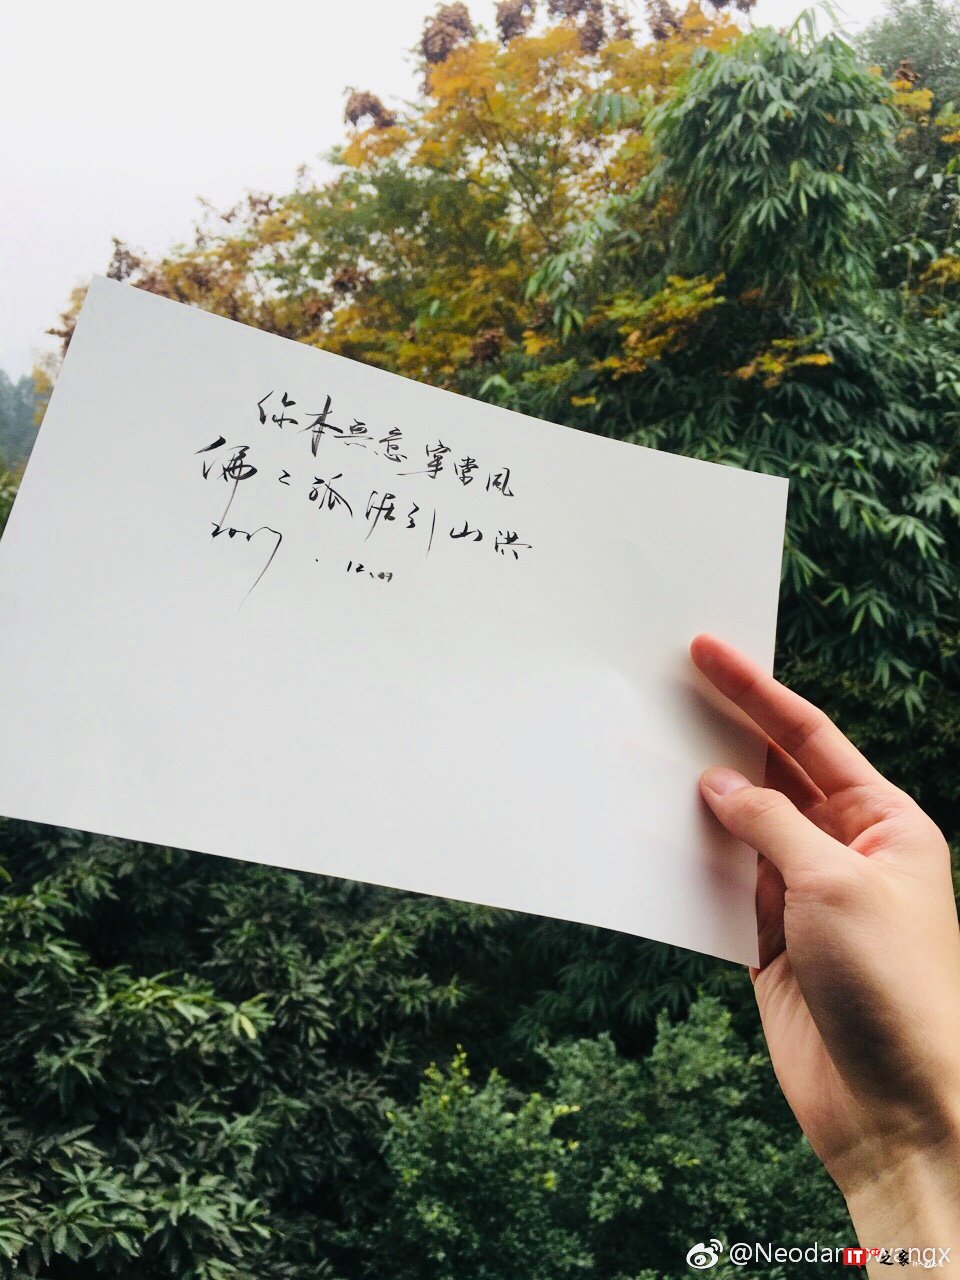 你本無意穿堂風
偏偏孤倨引山洪
2017.12.07
@Neodar
wangx
IT之家